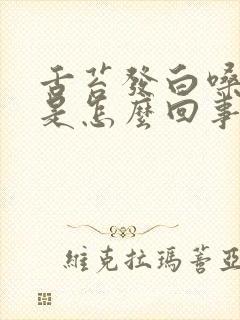 舌苔發白嗓
是怎麼回事
維克拉瑪蓍亞